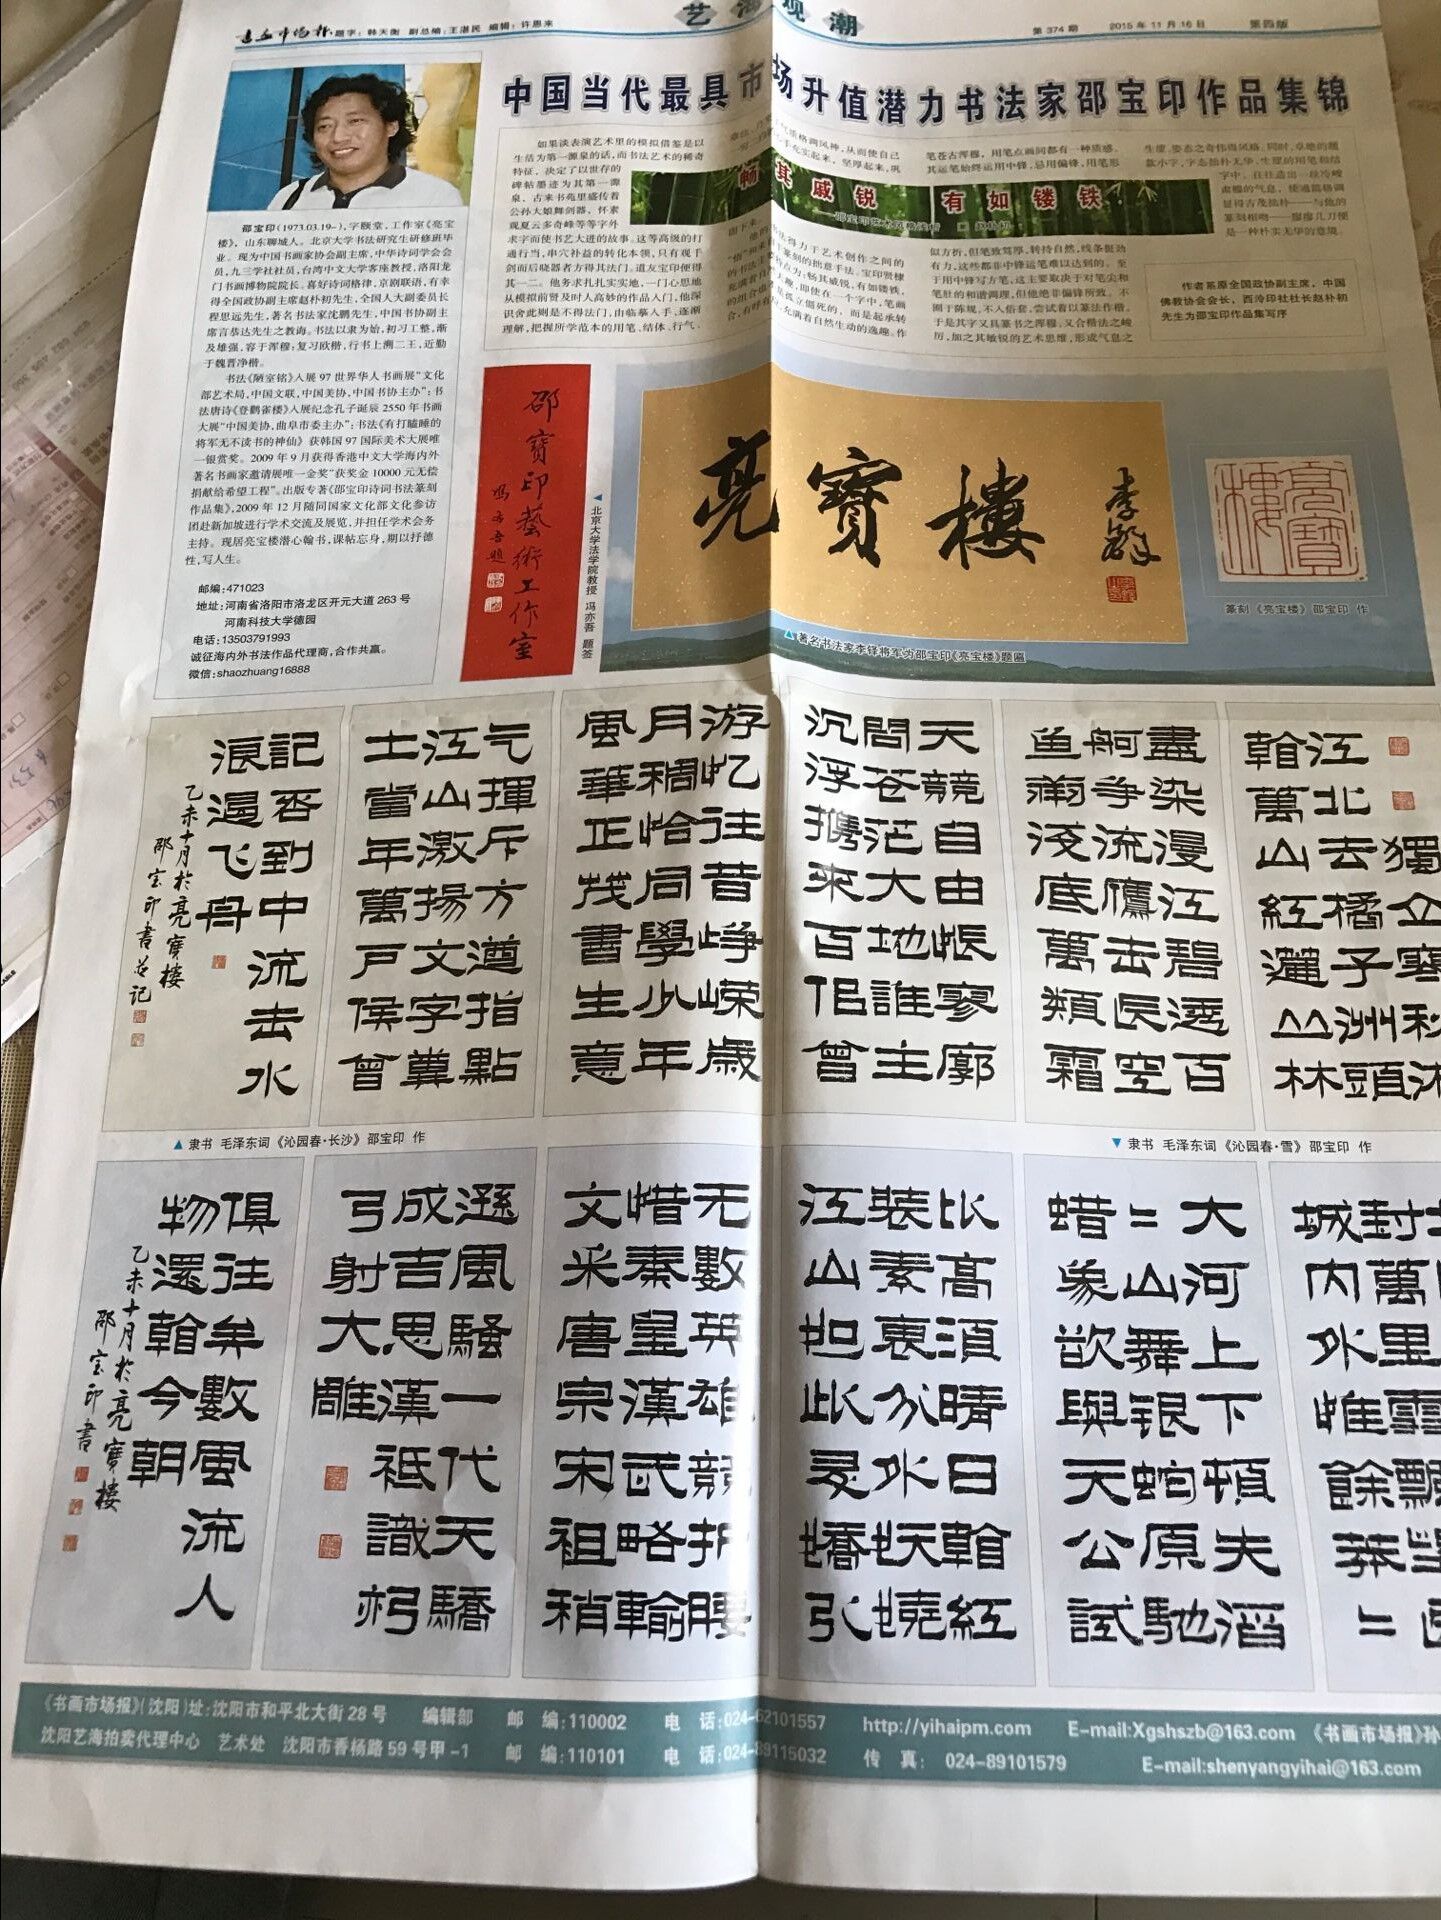 书画市场报 题字：韩天衡 副总编：王湛民 编辑：许恩来
艺海观潮
第374期 2015年11月16日 第四版
中国当代最具市场升值潜力书法家邵宝印作品集锦
邵宝印(1973.03.19-)，字颐堂，工作室《亮宝
楼》，山东聊城人。北京大学书法研究生研修班毕
业。现为中国书画家协会副主席，中华诗词学会会
员，九三学社社员，台湾中文大学客座教授，洛阳龙
门书画博物院院长。喜好诗词格律，京剧联语，有幸
得全国政协副主席赵朴初先生，全国人大副委员长
程思远先生，著名书法家沈鹏先生，中国书协副主
席言恭达先生之教诲。书法以隶为始，初习工整，渐
及雄强，容于浑穆；复习欧楷，行书上溯二王，近勤
于魏晋净楷。
书法《陋室铭》入展97世界华人书画展“文化
部艺术局，中国文联，中国美协，中国书协主办”；书
法唐诗《登鹳雀楼》入展纪念孔子诞辰2550年书画
大展“中国美协，曲阜市委主办”；书法《有打瞌睡的
将军无不读书的神仙》获韩国97国际美术大展唯
一银赏奖。2009年9月获得香港中文大学海内外
著名书画家邀请展唯一金奖“获奖金10000元无偿
捐献给希望工程”。出版专著《邵宝印诗词书法篆刻
作品集》，2009年12月随同国家文化部文化参访
团赴新加坡进行学术交流及展览，并担任学术会务
主持。现居亮宝楼潜心翰书，课帖忘身，期以抒德
性，写人生。
邮编：471023
地址：河南省洛阳市洛龙区开元大道263号
河南科技大学德园
电话：13503791993
诚征海内外书法作品代理商，合作共赢。
微信：shaozhuang16888
如果谈表演艺术里的模拟借鉴是以
生活为第一源泉的话，而书法艺术的稀奇
特征，决定了以世存的
碑帖墨迹为其第一源
泉，古来书苑里盛传着
公孙大娘舞剑器、怀素
观夏云多奇峰等等字外
求字而使书艺大进的故事。这等高级的打
通行当，串穴补益的转化本领，只有观千
剑而后晓器者方得其法门。道友宝印便得
其一二。他务求扎扎实实地，一门心思地
从模拟前贤及时人高妙的作品入门，他深
识舍此则是不得法门，由临摹人手，逐渐
理解，把握所学范本的用笔、结体、行气、
畅其威锐 有如镂铁
笔苍古浑穆，用笔点画间都有一种质感，
其运笔始终运用中锋，忌用偏锋，用笔形
似方折，但笔致笃厚，转持自然，线条挺劲
有力，这些都非中锋运笔难以达到的。至
于用中锋写方笔，这主要取决于对笔尖和
笔肚的和谐调理，但他绝非偏锋所致。不
囿于陈规，不人俗套，尝试着以篆法作楷。
于是其字又具篆书之浑穆，又合楷法之峻
厉，加之其敏锐的艺术思维，形成气息之
生崖、姿态之奇伟得风格。同时，卓地的题
款小字，字态拙朴无华，生崖的用笔和结
字中，往往造出一歧冷峻
肃穆的气息，使通篇格调
显得古茂拙朴——与他的
篆刻相吻——廖廖几刀便
是一种朴实无华的意境。
作者系原全国政协副主席，中国
佛教协会会长，西泠印社社长赵朴初
先生为邵宝印作品集写序
邵寶印藝術工作室
冯亦吾题
北京大学法学院教授 冯亦吾 题签
亮寶樓
李鐸
著名书法家李铎将军为邵宝印《亮宝楼》题匾
亮寶樓
篆刻《亮宝楼》邵宝印 作
獨立寒秋
江北去橘子洲頭
翰萬山紅遍山林
盡染漫江碧透百
舸争流鷹击長空
鱼翔浅底萬類霜
天競自由怅寥廓
問苍茫大地誰主
沉浮携来百侣曾
游忆往昔峥嵘歲
月稠恰同學少年
風華正茂書生意
气揮斥方遒指點
江山激揚文字糞
土當年萬戸侯曾
記否到中流击水
浪遏飞舟
乙未十月於亮寶樓
邵宝印書并记
▲隶书 毛泽东词《沁园春·长沙》邵宝印 作
▼隶书 毛泽东词《沁园春·雪》邵宝印 作
封萬里雪飄
城内外惟餘莽二
大河上下頓失滔
二山舞银蛇原馳
蜡象欲與天公試
比高須晴日翰紅
装素裹分外妖嬈
江山如此多嬌引
无數英雄競折腰
惜秦皇漢武略輸
文采唐宗宋祖稍
遜風騷一代天驕
成吉思漢祗識彎
弓射大雕
俱往矣數風流人
物還翰今朝
乙未十月於亮寶樓
邵宝印書
《书画市场报》(沈阳)址：沈阳市和平北大街28号 编辑部 邮 编：110002 电 话：024-62101557 http://yihaipm.com E-mail:Xgshszb@163.com 《书画市场报》孙
沈阳艺海拍卖代理中心 艺术处 沈阳市香杨路59号甲-1 邮 编：110101 电 话：024-89115032 传 真： 024-89101579 E-mail:shenyangyihai@163.com